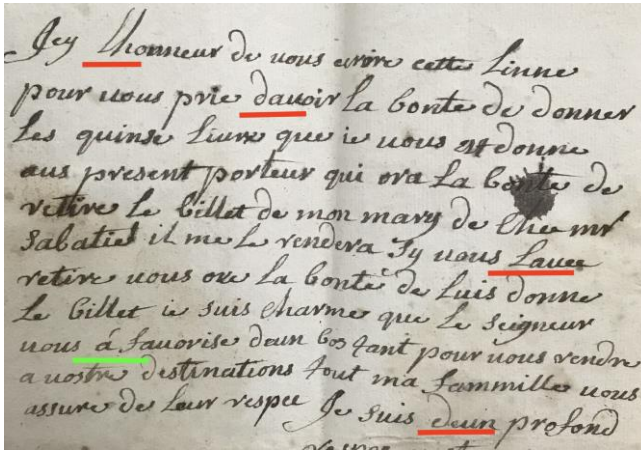 Jey lhonneur de uous ecrire cette Linne
pour uous prie dauoir La bonte de donner
Les quinse Liure que ie uous donne
aus present porteur qui ora La bonte de
retire Le billet de mon mary de Chee mr
Sabatie il me Le rendera Sy uous Lauee
retire uous ore La bonté de Luis donne
Le billet ie suis charme que Le Seigneur
uous á fauorise daun bos tant pour uous rendre
a uostre destinations tout ma fammille uous
assure de Leur respec Je suis deun profond
respec